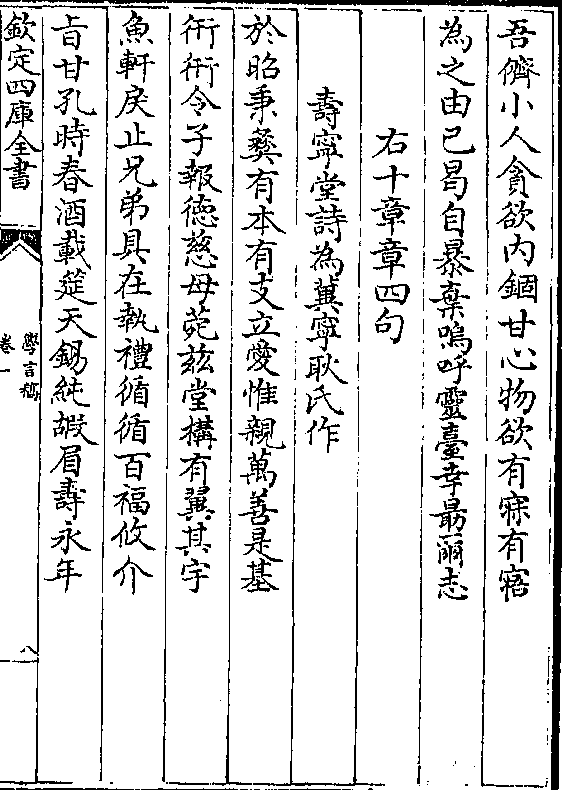 吾儕小人貪欲内錮甘心物欲有寐有寤
為之由已曷自暴棄嗚呼靈臺幸勗爾志
右十章章四句
壽寧堂詩為冀寧耿氏作
於昭秉彜有本有支立愛惟親萬善是基
衎衎令子報德慈母菀兹堂構有翼其宇
魚軒戾止兄弟具在執禮循循百福攸介
㫖甘孔時春酒載筵天錫純嘏眉壽永年
欽定四庫全書
學言稿
卷一
八